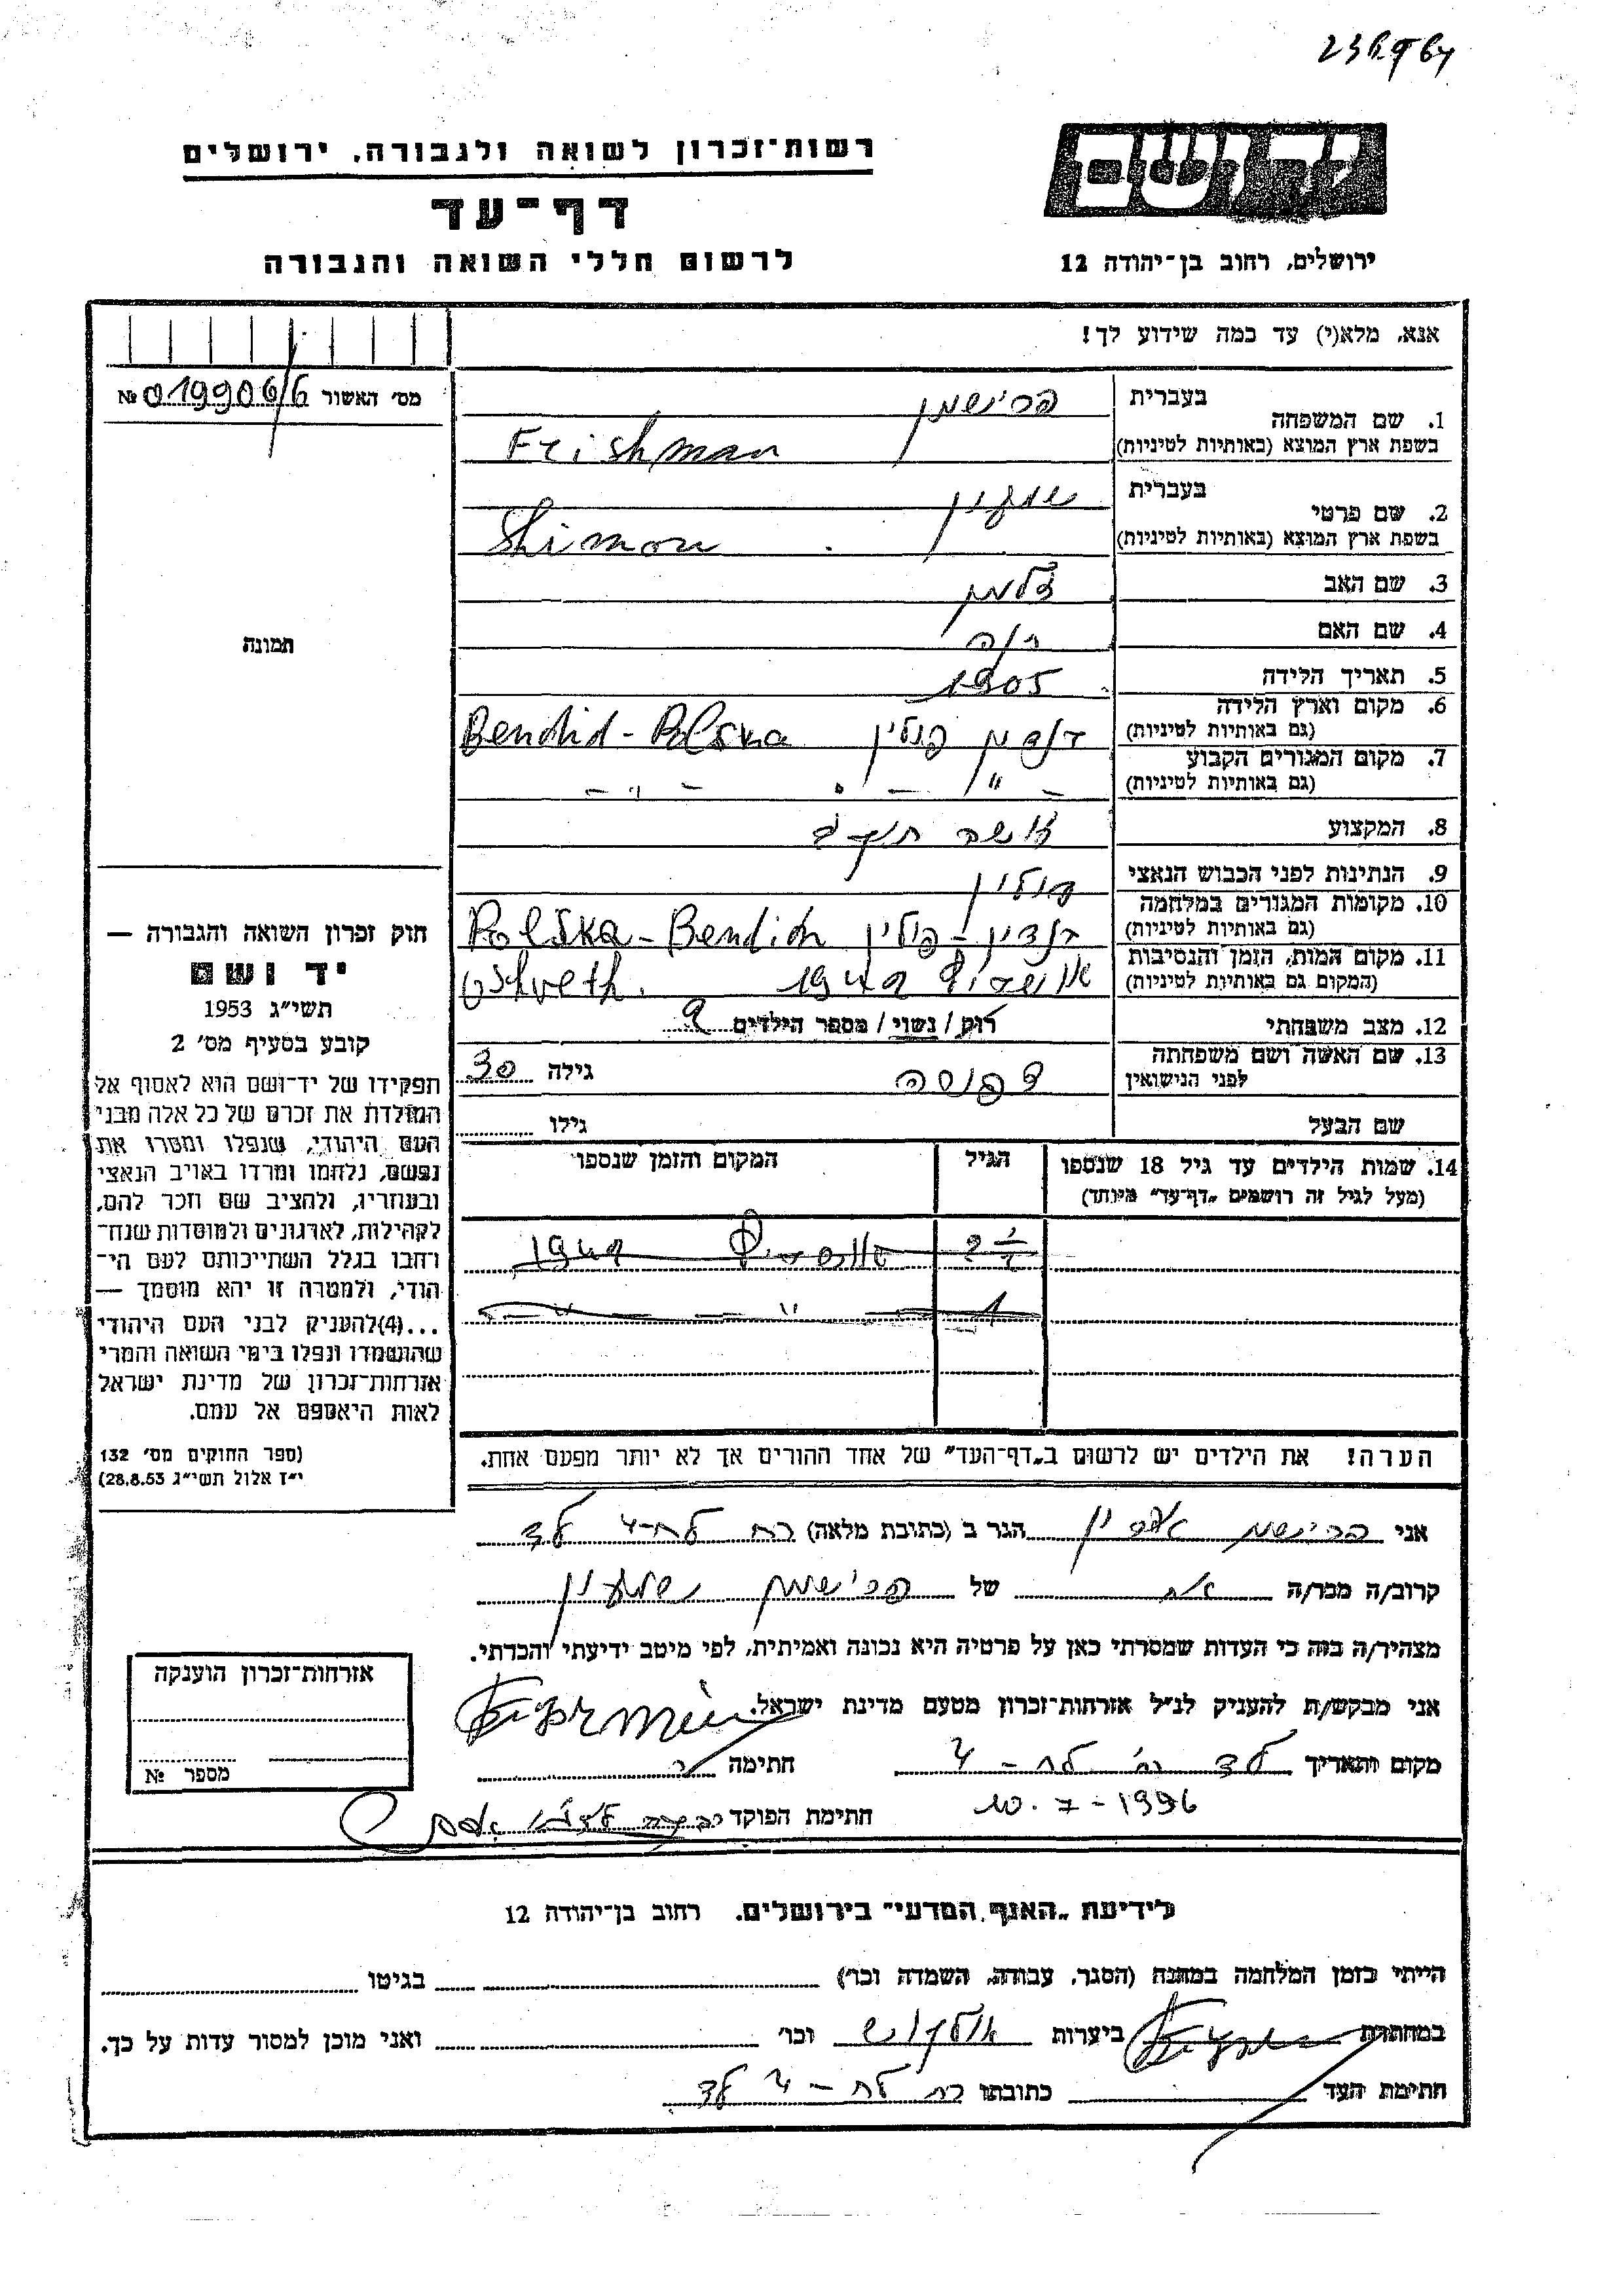 יד ושם
רשות־זכרון לשואה ולגבורה, ירושלים
דף־עד
לרשום חללי השואה והגבורה
ירושלים, רחוב בן־יהודה 12
אנא, מלא(י) עד כמה שידוע לך!
מס׳ האשור № 019906/6
1. שם המשפחה
בעברית פרישמן
בשפת ארץ המוצא (באותיות לטיניות) Frishman
2. שם פרטי
בעברית שמעון
בשפת ארץ המוצא (באותיות לטיניות) Shimon
3. שם האב זלמן
4. שם האם
5. תאריך הלידה 1905
6. מקום וארץ הלידה
(גם באותיות לטיניות) בנדין פולין Bendid - Polska
7. מקום המגורים הקבוע
(גם באותיות לטיניות) - " -
8. המקצוע
9. הנתינות לפני הכבוש הנאצי פולין
10. מקומות המגורים במלחמה
(גם באותיות לטיניות) בנדין - פולין Polska - Bendin
11. מקום המות, הזמן והנסיבות
(המקום גם באותיות לטיניות) אושביץ 1942 Oshveth.
12. מצב משפחתי רוק / נשוי / מספר הילדים 2
13. שם האשה ושם משפחתה
לפני הנישואין גילה 30
שם הבעל גילו
14. שמות הילדים עד גיל 18 שנספו
(מעל לגיל זה רושמים „דף־עד" מיוחד)
הגיל
המקום והזמן שנספו
2 1/2 1942
1 - " -
הערה! את הילדים יש לרשום ב„דף־העד" של אחד ההורים אך לא יותר מפעם אחת.
תמונה
חוק זכרון השואה והגבורה —
יד ושם
תשי״ג 1953
קובע בסעיף מס׳ 2
תפקידו של יד־ושם הוא לאסוף אל
המולדת את זכרם של כל אלה מבני
העם היהודי, שנפלו ומסרו את
נפשם, נלחמו ומרדו באויב הנאצי
ובעוזריו, ולהציב שם וזכר להם,
לקהילות, לארגונים ולמוסדות שנח־
רחבו בגלל השתייכותם לעם הי־
הודי, ולמטרה זו יהא מוסמך —
...(4)להעניק לבני העם היהודי
שהושמדו ונפלו בימי השואה והמרי
אזרחות־זכרון של מדינת ישראל
לאות היאספם אל עמם.
(ספר החוקים מס׳ 132
י״ז אלול תשי״ג 28.8.53)
אני פרישמן הגר ב (כתובת מלאה) רח לח-4 לד
קרוב/ה מכר/ה אח של פרישמן שמעון
מצהיר/ה בזה כי העדות שמסרתי כאן על פרטיה היא נכונה ואמיתית, לפי מיטב ידיעתי והכרתי.
אני מבקש/ת להעניק לנ״ל אזרחות־זכרון מטעם מדינת ישראל.
מקום ותאריך לד רח׳ לח - 4 חתימה
10.7-1996
חתימת הפוקד
אזרחות־זכרון הוענקה
מספר №
לידיעת „האגף המדעי" בירושלים, רחוב בן־יהודה 12
הייתי בזמן המלחמה במחנה (הסגר, עבודה, השמדה וכו׳) בגיטו
במחתרת ביערות וכו׳ ואני מוכן למסור עדות על כך.
חתימת העד כתובתו רח לח - 4 לד